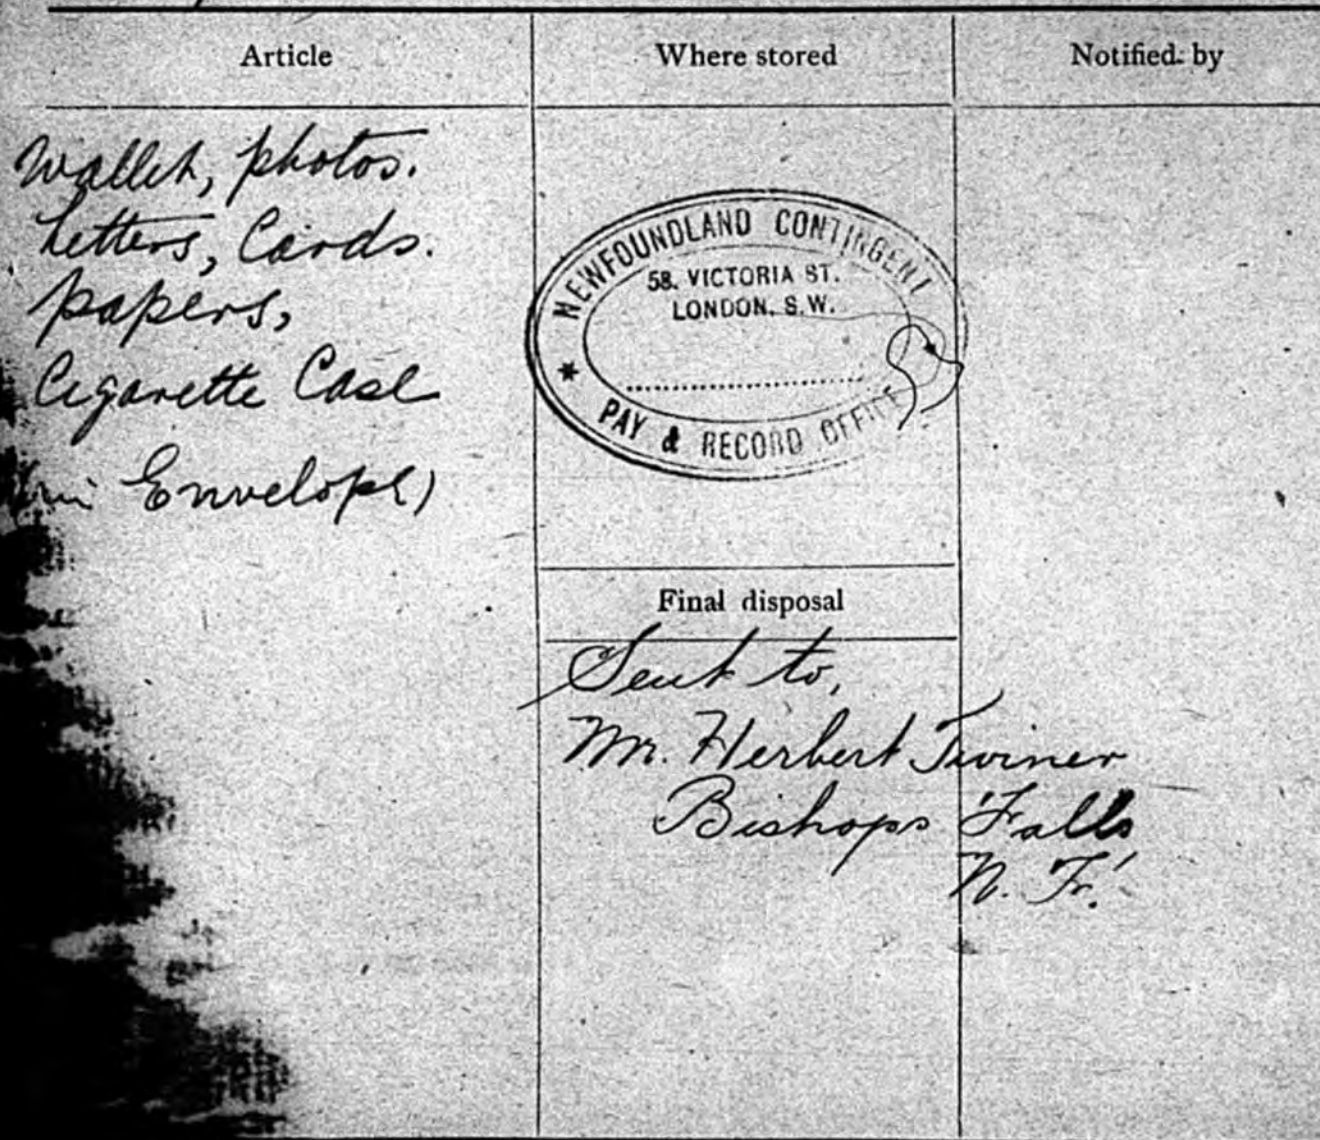 Article
Where stored
Notified by
Wallet, photos.
Letters, Cards.
papers,
Cigarette Case
(in Envelope)
NEWFOUNDLAND CONTINGENT
58. VICTORIA ST.
LONDON. S.W.
PAY & RECORD OFFICE
Final disposal
Sent to,
Mr. Herbert Twiner
Bishops Falls
N. F.